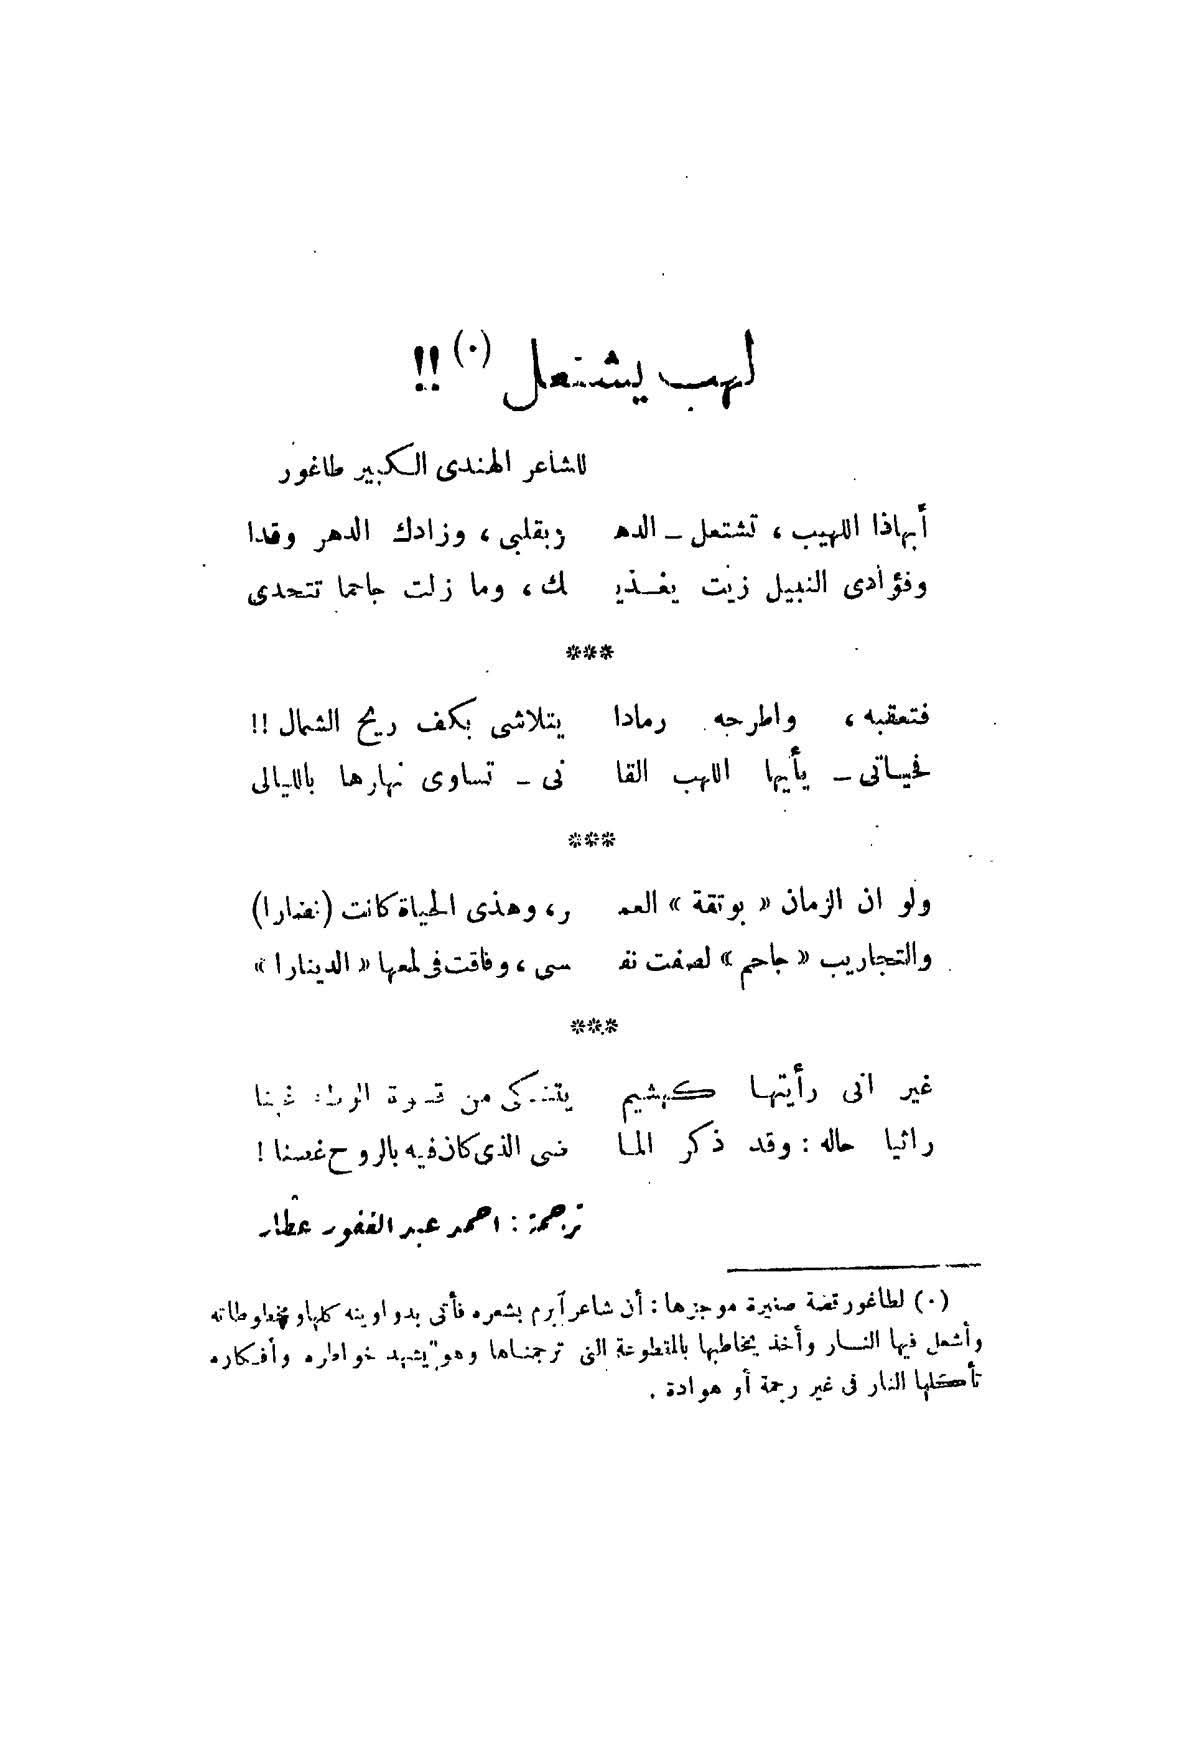 لهب يشتعل (٠) !!
للشاعر الهندى الكبير طاغور
أيهاذا اللهيب ، تشتعل ــ الده ر بقلبى ، وزادك الدهر وقدا
وفؤادى النبيل زيت يغــذيـ ـك ، وما زلت جاحما تتحدى
***
فتعقبه ، واطرحه رمادا يتلاشى بكف ريح الشمال !!
فحيـاتى ــ يأيها اللهب القا نى ــ تساوى نهارها بالليالى
***
ولو ان الزمان « بوتقة » العمـ ـر ، وهذى الحياة كانت (نضارا)
والتجاريب « جاحم » لصفت نفـ ـسى ، وفاقت فى لمعها « الدينارا »
***
غير انى رأيتهـا كـهشيم يتشـكى من قسـوة غبنا
راثيا حاله : وقد ذكر المـا ضى الذى كان فيه بالروح غصنا !
ترجمة : احمد عبد الغفور عطار
(٠) لطاغور قصة صغيرة موجزها : أن شاعر آبرم بشعره فأتى بدواوينه كلها ومخطوطاته
وأشعل فيها النــار وأخذ يخاطبها بالمقطوعة التى ترجمنـاها وهو يشهد خواطره وأفـكاره
تأكلها النار فى غير رحمة أو هوادة .